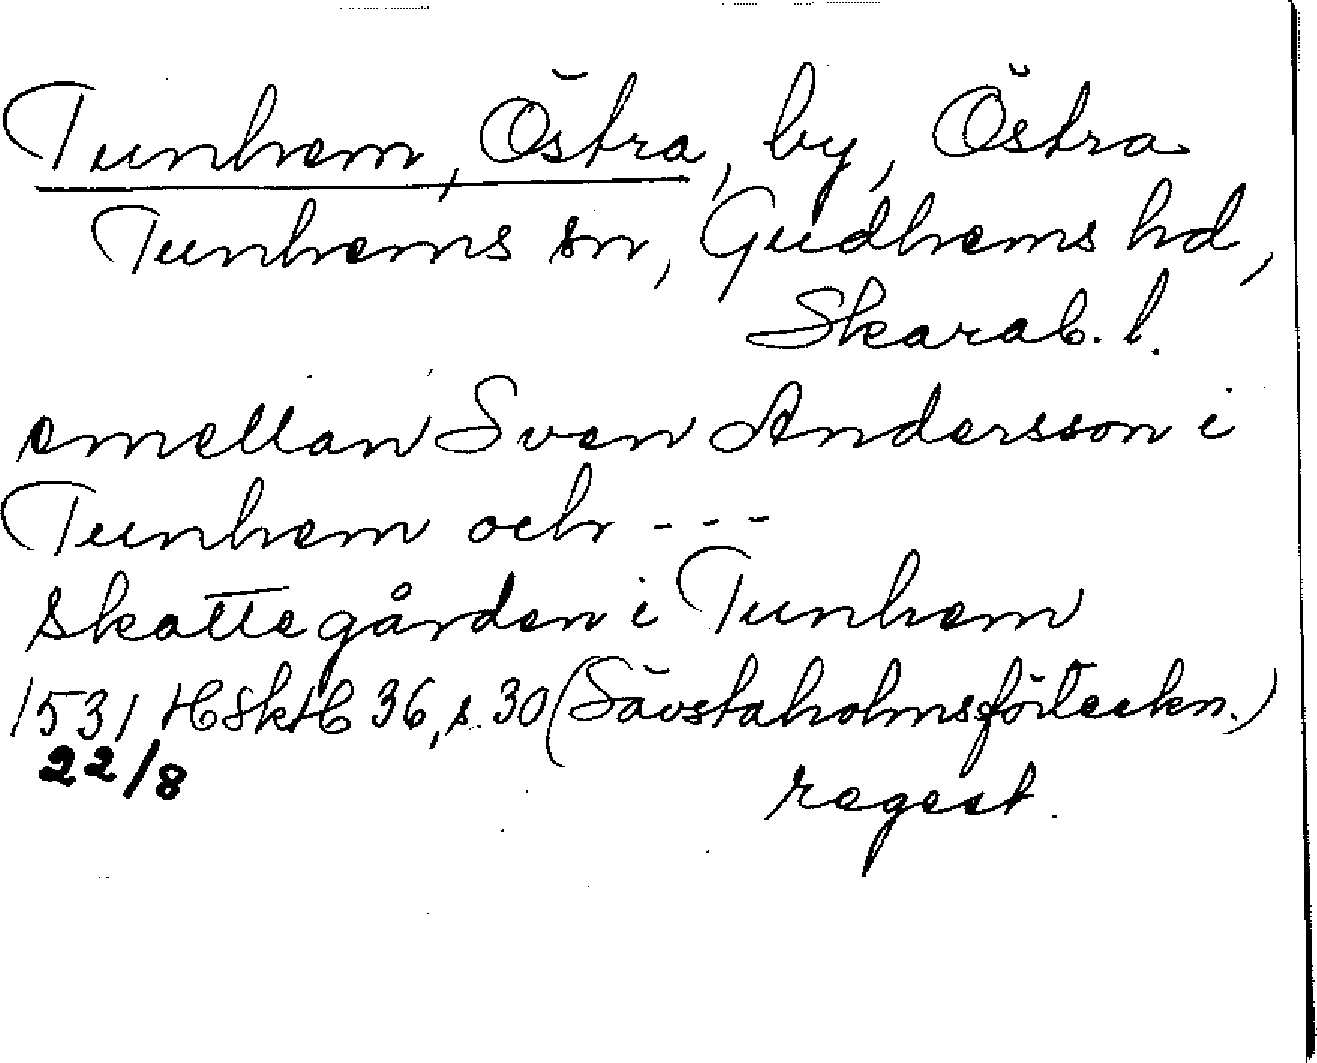 Tunhem, Östra, by, Östra
Tunhems sn, Gudhems hd,
Skarab. l.
emellan Sven Andersson i
Tunhem och ---
skattegården i Tunhem
1531 HSkH 36, s. 30 (Sävstaholmsförteckn.)
22/8
regest.